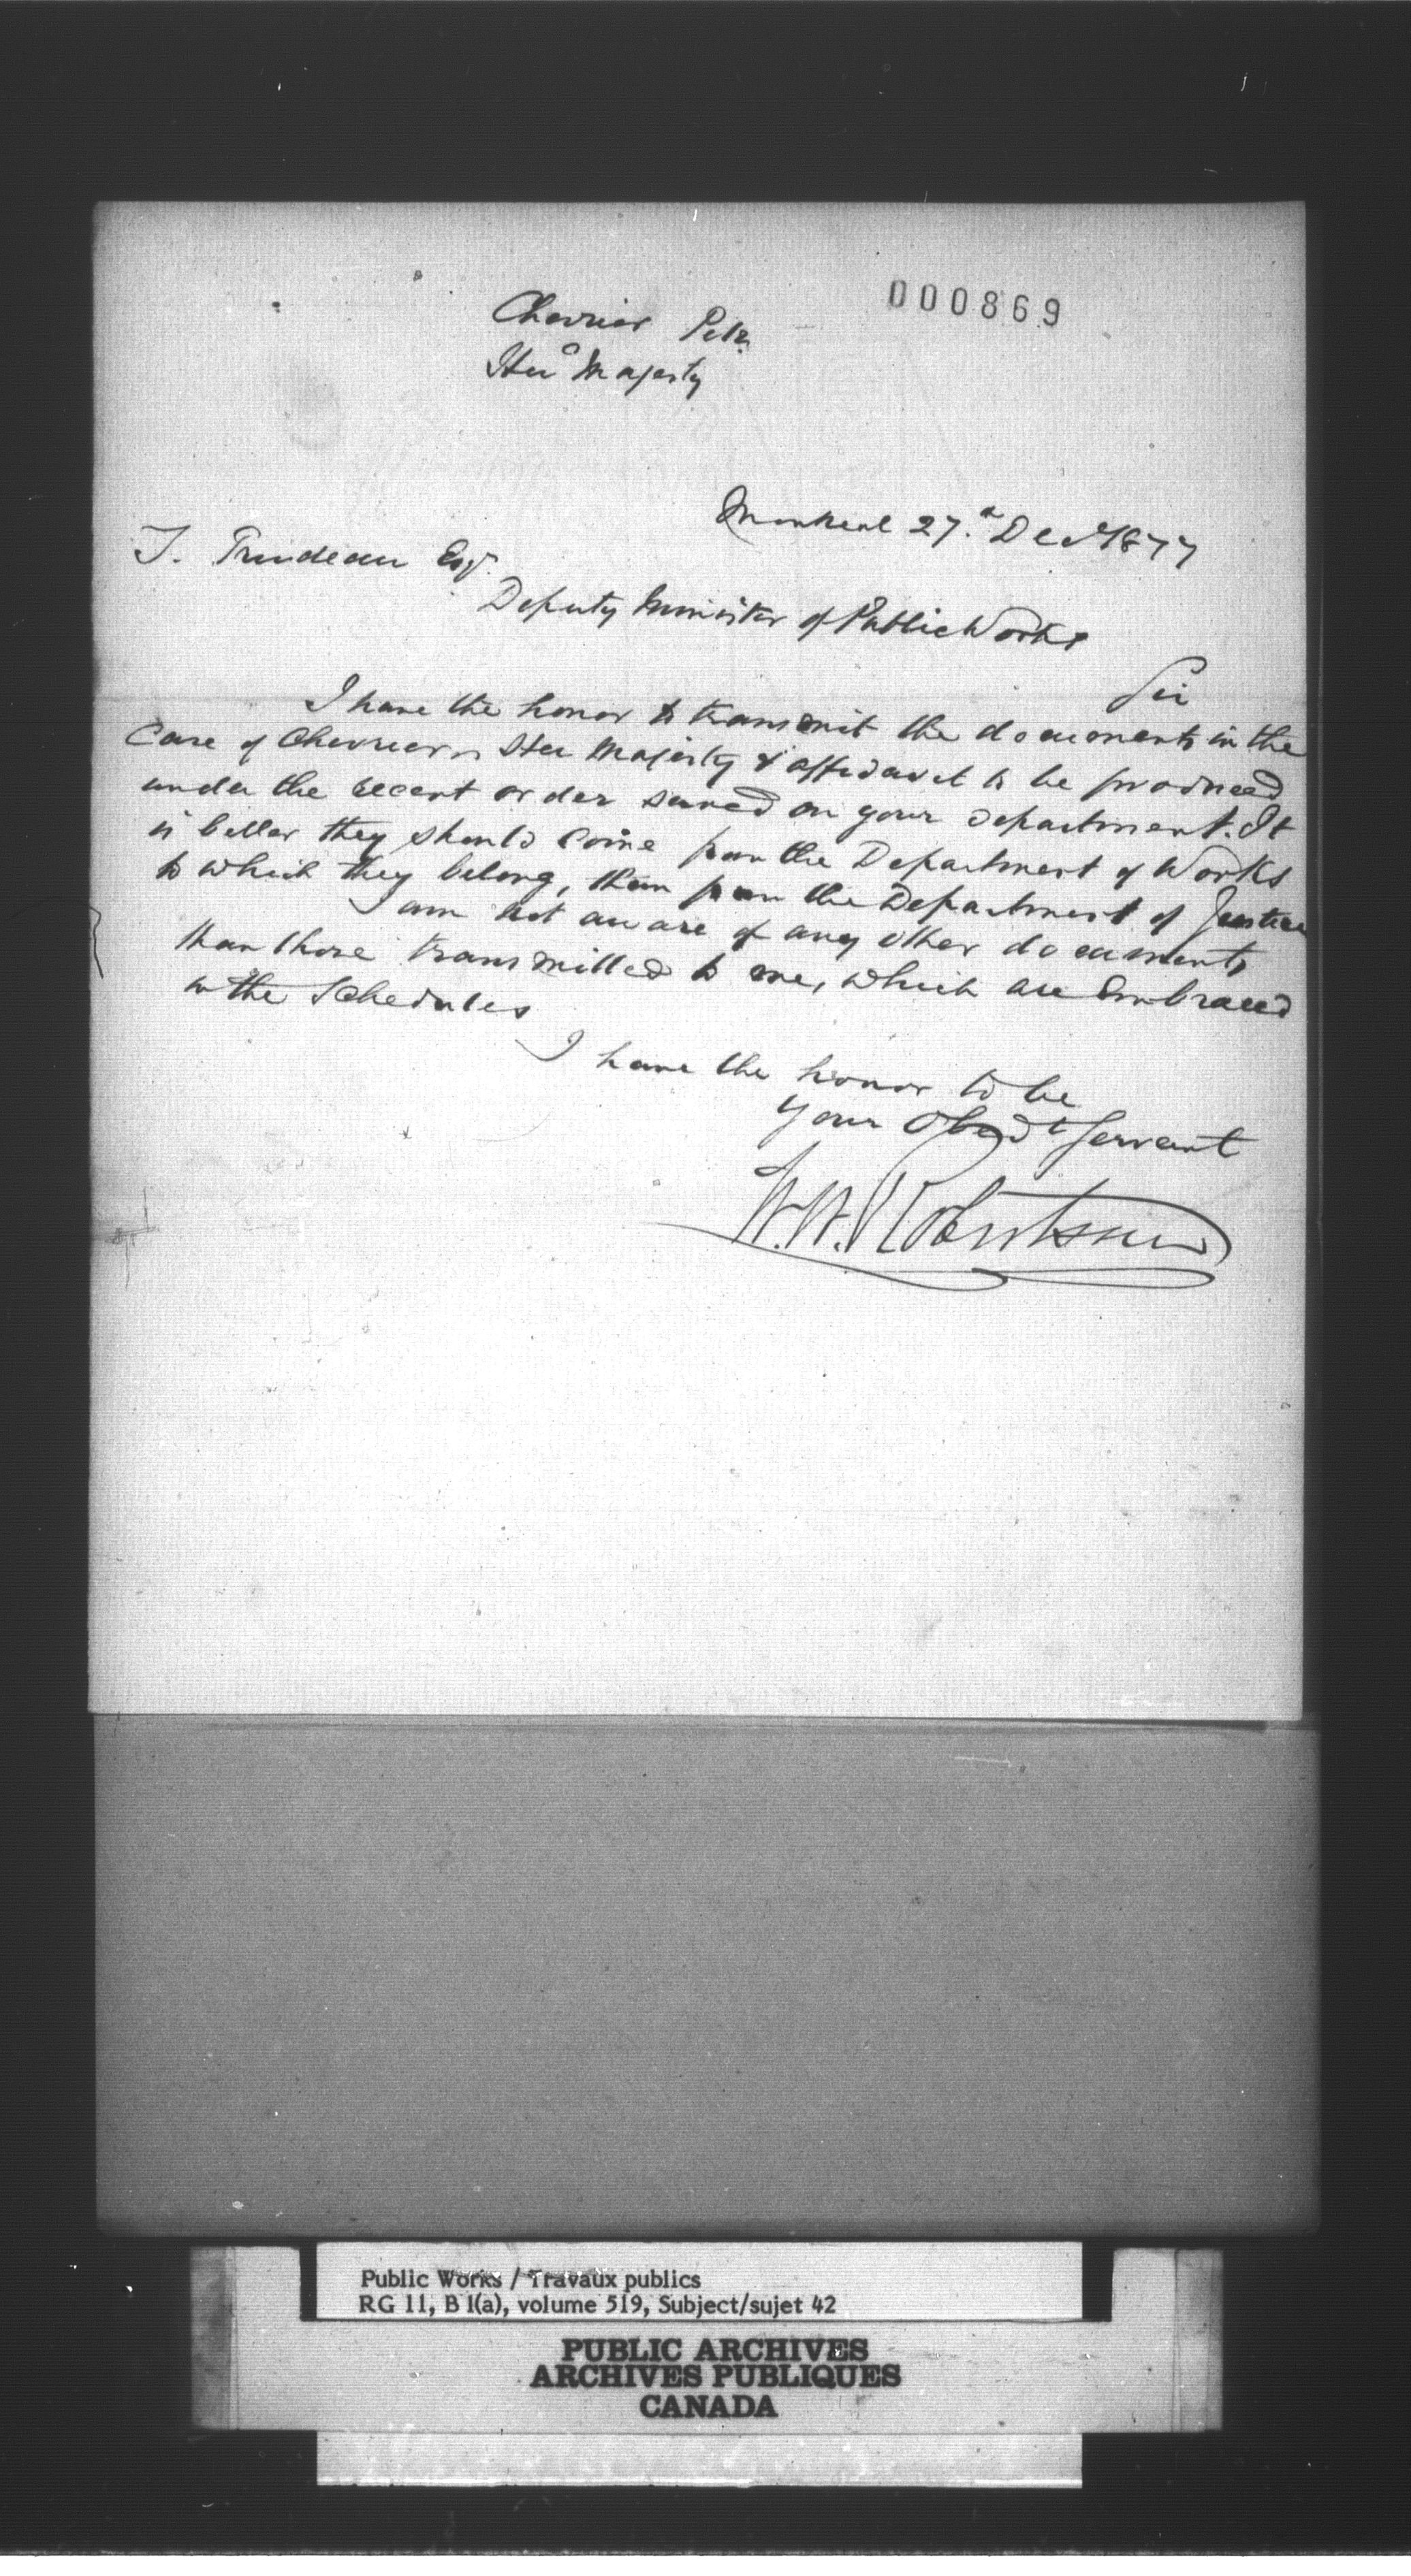 000869
Chevrier Petr.
&
Her Majesty
Montreal 27. Dec 1877
T. Trudeau Esqr.
Deputy Minister of Public Works
Sir
I have the honor to transmit the documents in the
Case of Chevrier vs Her Majesty & affidavit to be produced
under the recent order served on your department. It
is better they should come from the Department of Works
to which they belong, than from the Department of Justice
I am not aware of any other documents
than those transmitted to me, which are Embraced
in the Schedules
I have the honor to be
Your Obedt Servant
W.W. Robertson
Public Works / Travaux publics
RG 11, B 1(a), volume 519, Subject/sujet 42
PUBLIC ARCHIVES
ARCHIVES PUBLIQUES
CANADA